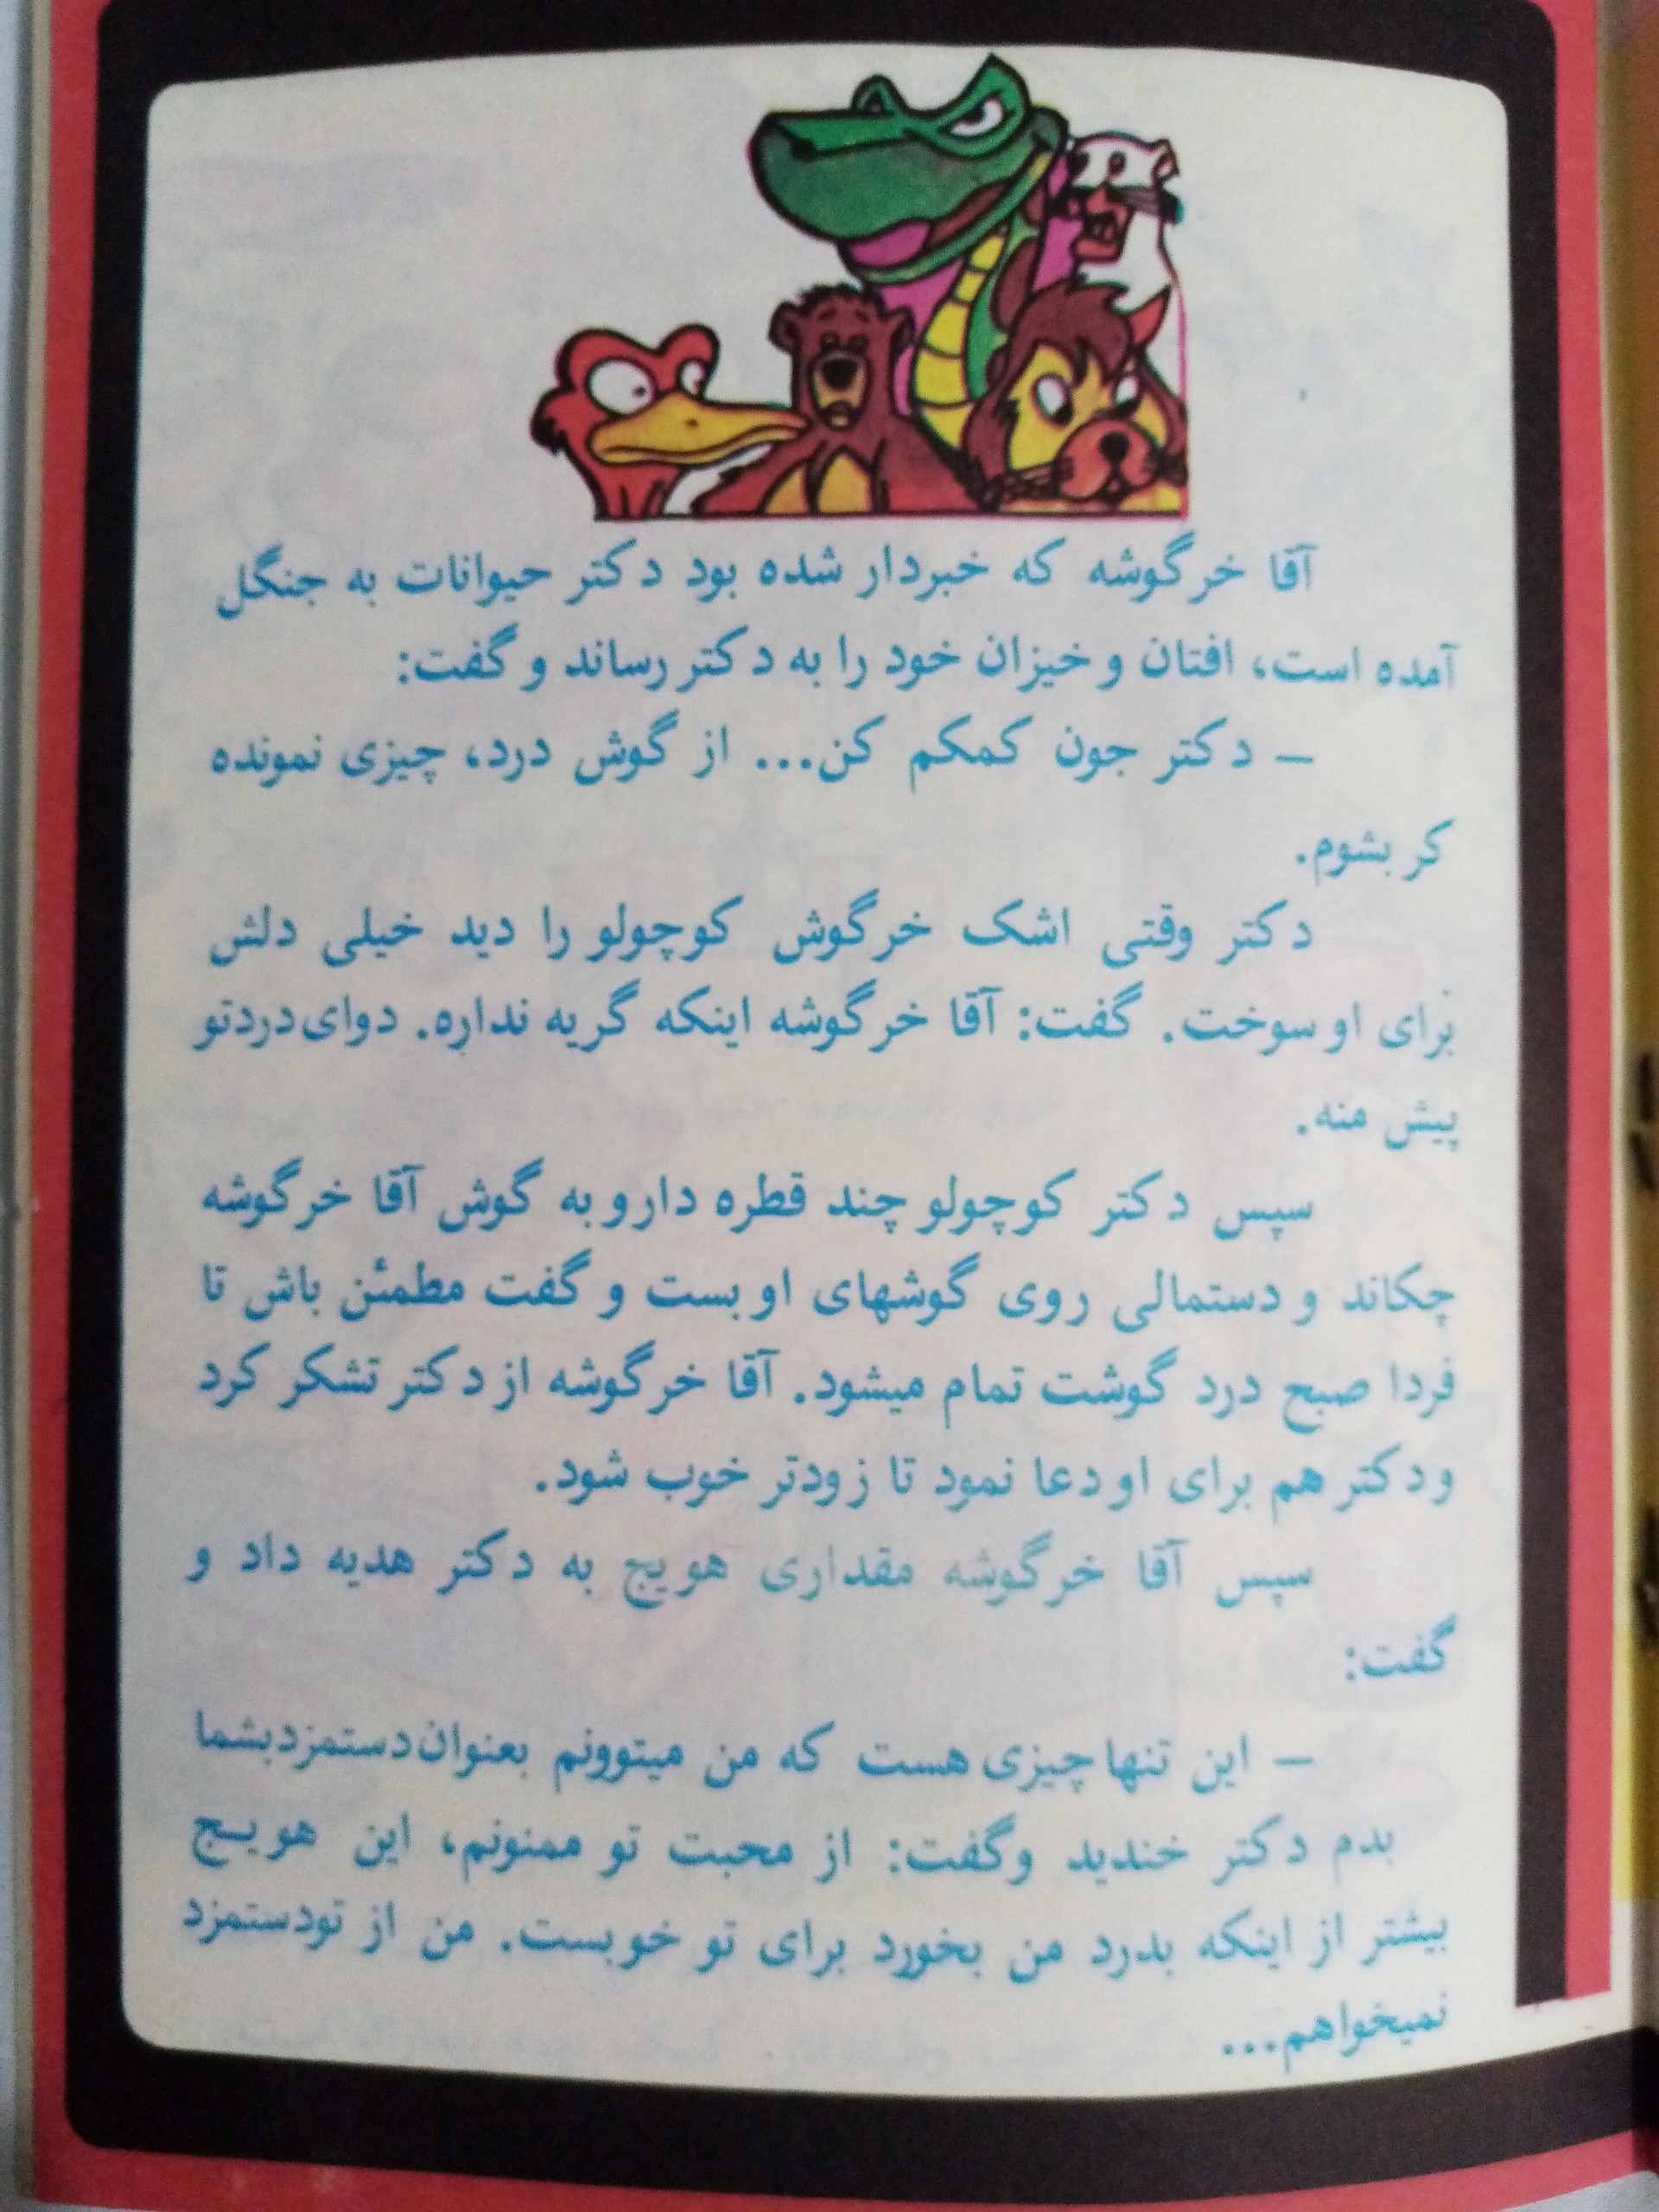 آقا خرگوشه که خبردار شده بود دکتر حیوانات به جنگل
آمده است، افتان و خیزان خود را به دکتر رساند و گفت:
– دکتر جون کمکم کن... از گوش درد، چیزی نمونده
کر بشوم.
دکتر وقتی اشک خرگوش کوچولو را دید خیلی دلش
برای او سوخت. گفت: آقا خرگوشه اینکه گریه نداره. دوای دردتو
پیش منه.
سپس دکتر کوچولو چند قطره دارو به گوش آقا خرگوشه
چکاند و دستمالی روی گوشهای او بست و گفت مطمئن باش تا
فردا صبح درد گوشت تمام میشود. آقا خرگوشه از دکتر تشکر کرد
و دکتر هم برای او دعا نمود تا زودتر خوب شود.
سپس آقا خرگوشه مقداری هویج به دکتر هدیه داد و
گفت:
– این تنها چیزی هست که من میتوونم بعنوان دستمزد بشما
بدم دکتر خندید وگفت: از محبت تو ممنونم، این هویج
بیشتر از اینکه بدرد من بخورد برای تو خوبست. من از تو دستمزد
نمیخواهم...